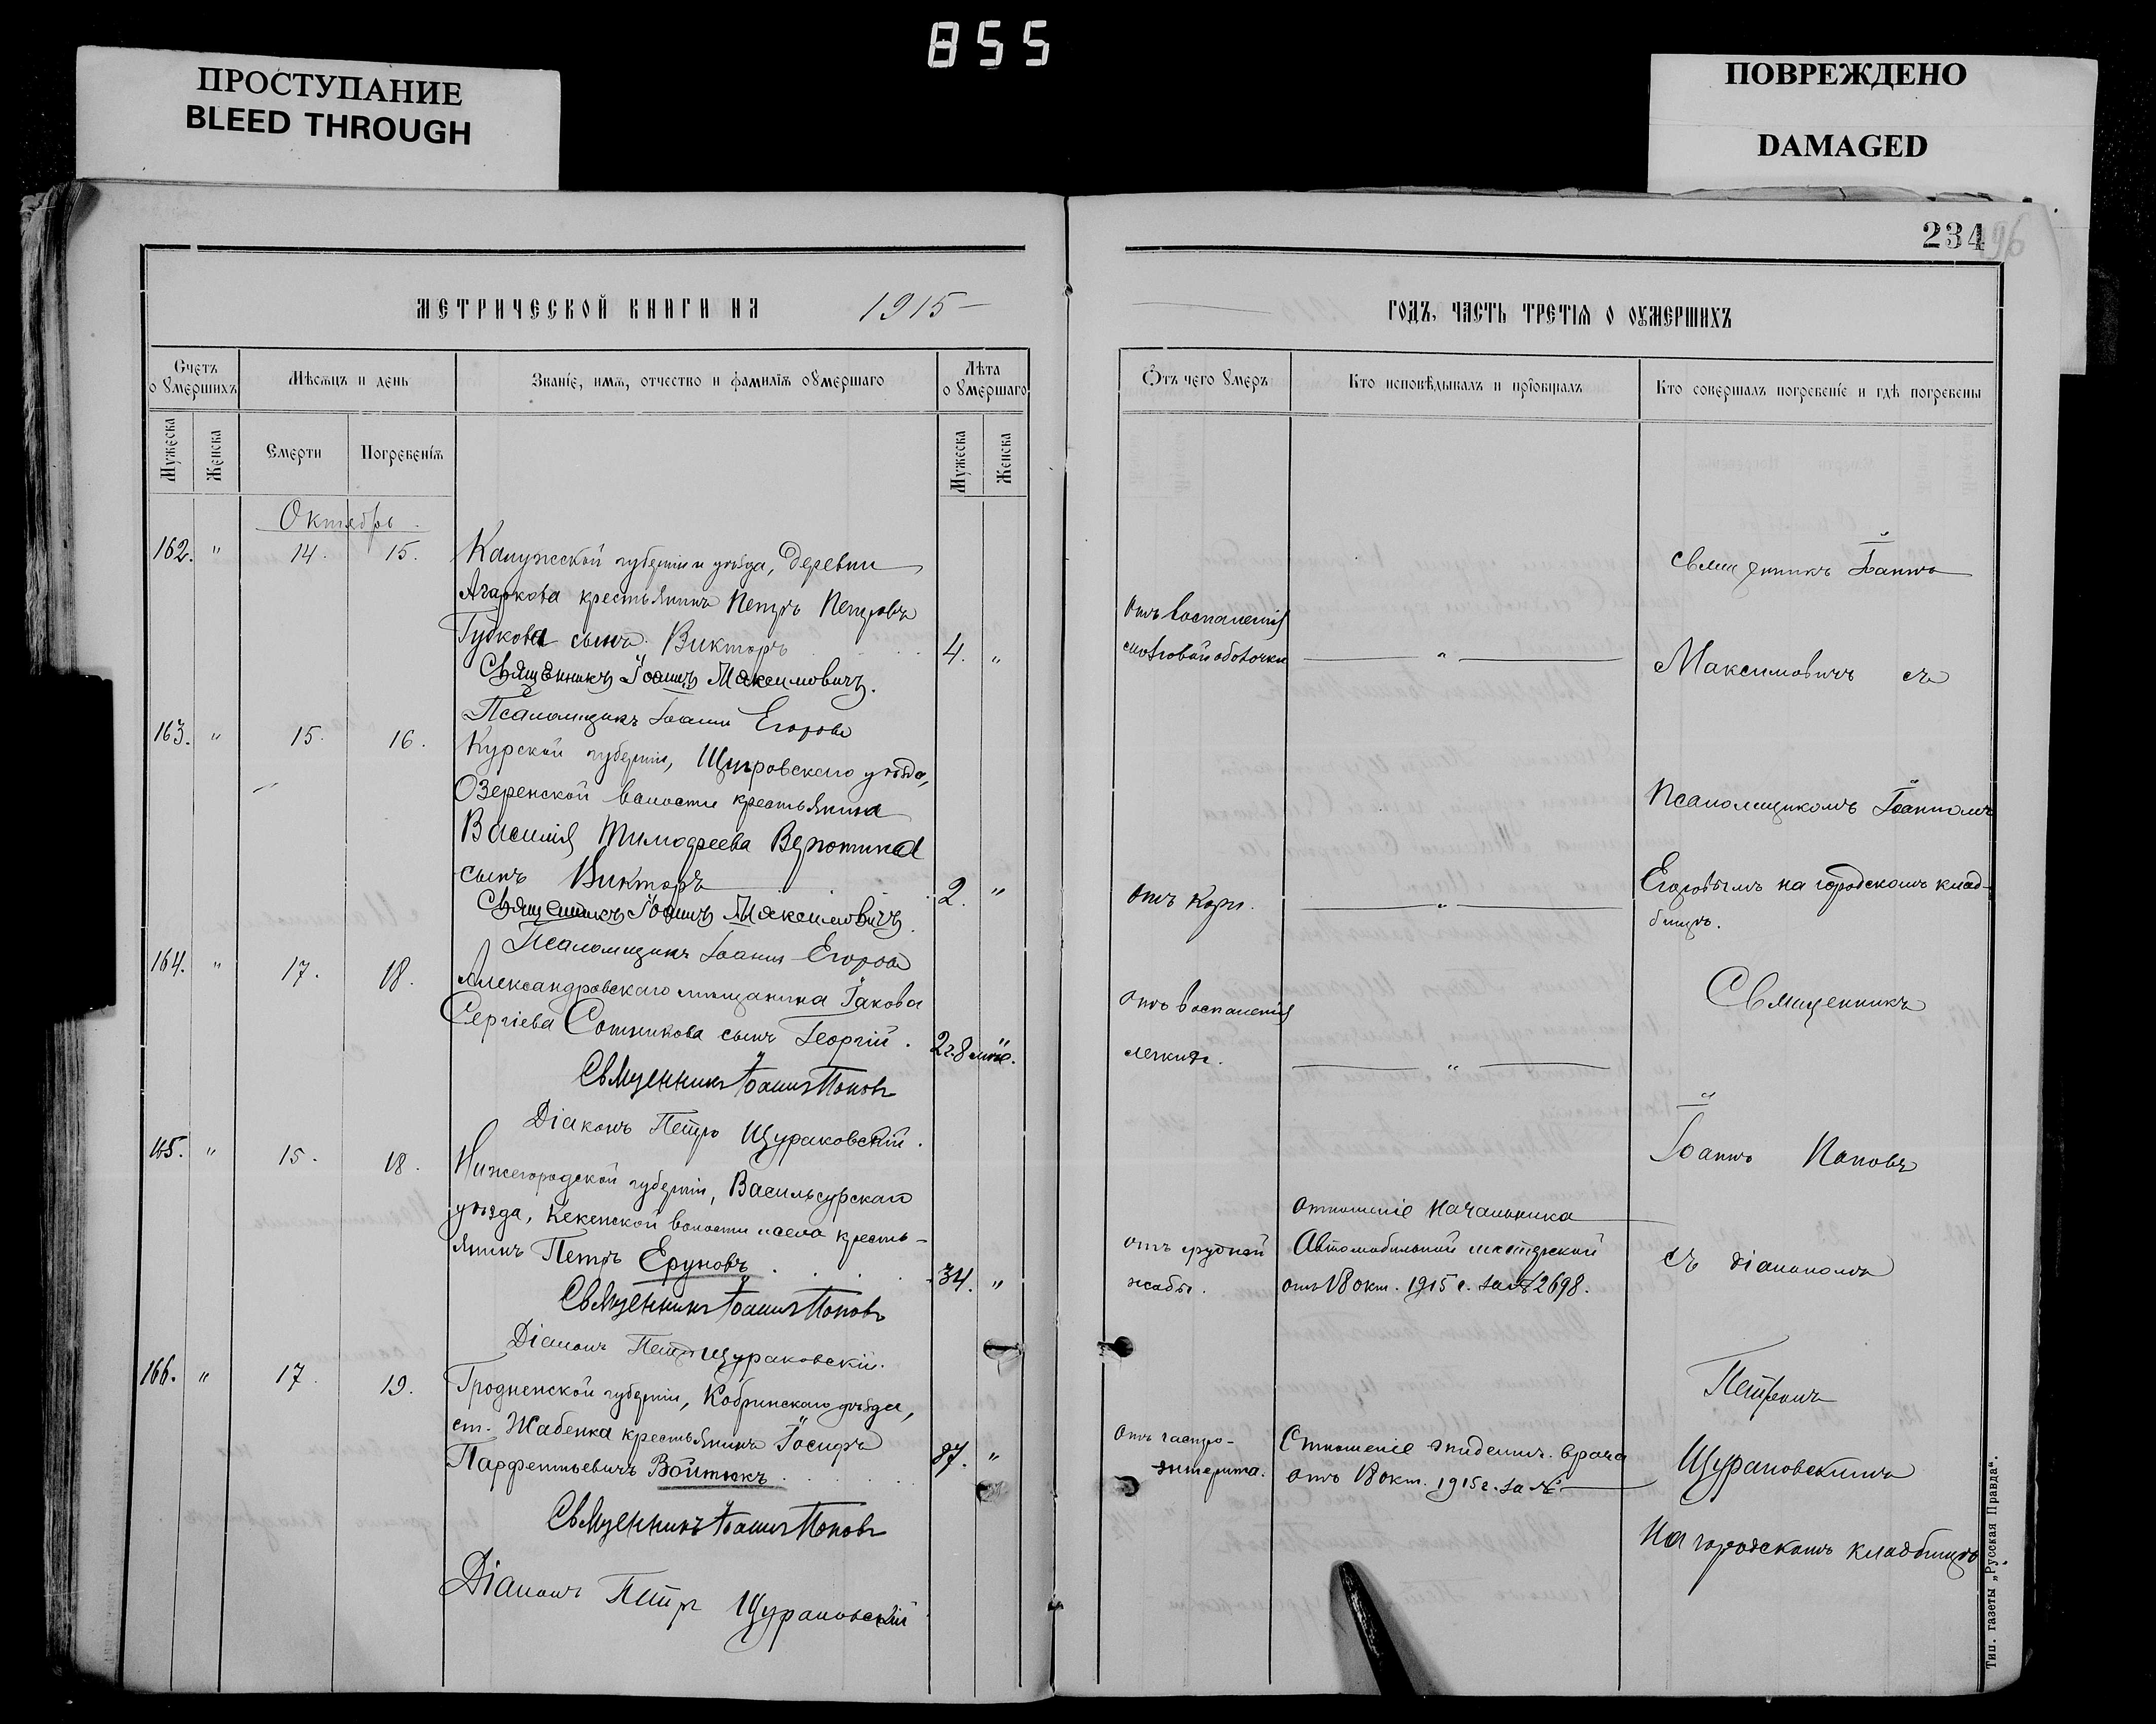 855
ПРОСТУПАНИЕ
BLEED THROUGH
ПОВРЕЖДЕНО
DAMAGED
234
МЕТРИЧЕСКОЙ КНИГИ НА 1915
Счетъ о умершихъ
Мѣсяцъ и день
Званіе, имя, отчество и фамилія умершаго
Лѣта умершаго
Мужеска
Женска
Смерти
Погребенія
Мужеска
Женска
Октябрь
162. " 14. 15. Калужской губерніи и уѣзда, деревни
Агаркова крестьянинъ Петръ Петровъ
Губкова сынъ Викторъ 4. "
Священникъ Іоаннъ Максимовичъ.
Псаломщикъ Іоаннъ Егоровъ
163. " 15. 16. Курской губерніи, Щигровскаго уѣзда,
Озеренской волости крестьянина
Василія Тимофеева
сынъ Викторъ 2. "
Священникъ Іоаннъ Максимовичъ.
Псаломщикъ Іоаннъ Егоровъ
164. " 17. 18. Александровскаго мѣщанина Іакова
Сергіева Сотникова сынъ Георгій. 2 г. 8 мѣс.
Священникъ Іоаннъ Поповъ
Діаконъ Петръ Щураковскій.
165. " 15. 18. Нижегородской губерніи, Васильсурскаго
уѣзда, волости и села кресть-
янинъ Петръ Еруновъ 34. "
Священникъ Іоаннъ Поповъ
Діаконъ Петръ Щураковскій.
166. " 17. 19. Гродненской губерніи, Кобринскаго уѣзда,
ст. Жабенка крестьянинъ Іосифъ
Парфентьевичъ Войтюкъ 87. "
Священникъ Іоаннъ Поповъ
Діаконъ Петръ Щураковскій
ГОДЪ, ЧАСТЬ ТРЕТІЯ О УМЕРШИХЪ
Отъ чего умеръ
Кто исповѣдывалъ и пріобщалъ
Кто совершалъ погребеніе и гдѣ погребены
Священникъ Іоаннъ
отъ воспаленія
мозговой оболочки "
Максимовичъ съ
Псаломщикомъ Іоанномъ
Егоровымъ на городскомъ клад-
бищѣ.
отъ кори. "
Священникъ
отъ воспаленія
легкихъ. "
Іоаннъ Поповъ
отъ грудной
жабы.
Отношеніе Начальника
Автомобильной мастерской
отъ 18 окт. 1915 г. за № 2698.
съ діакономъ
Петромъ
отъ гастро-
энтерита.
Отношеніе эпидемич. врача
отъ 18 окт. 1915 г. за №
Щураковскимъ
на городскомъ кладбищѣ
Тип. газеты „Русская Правда“.